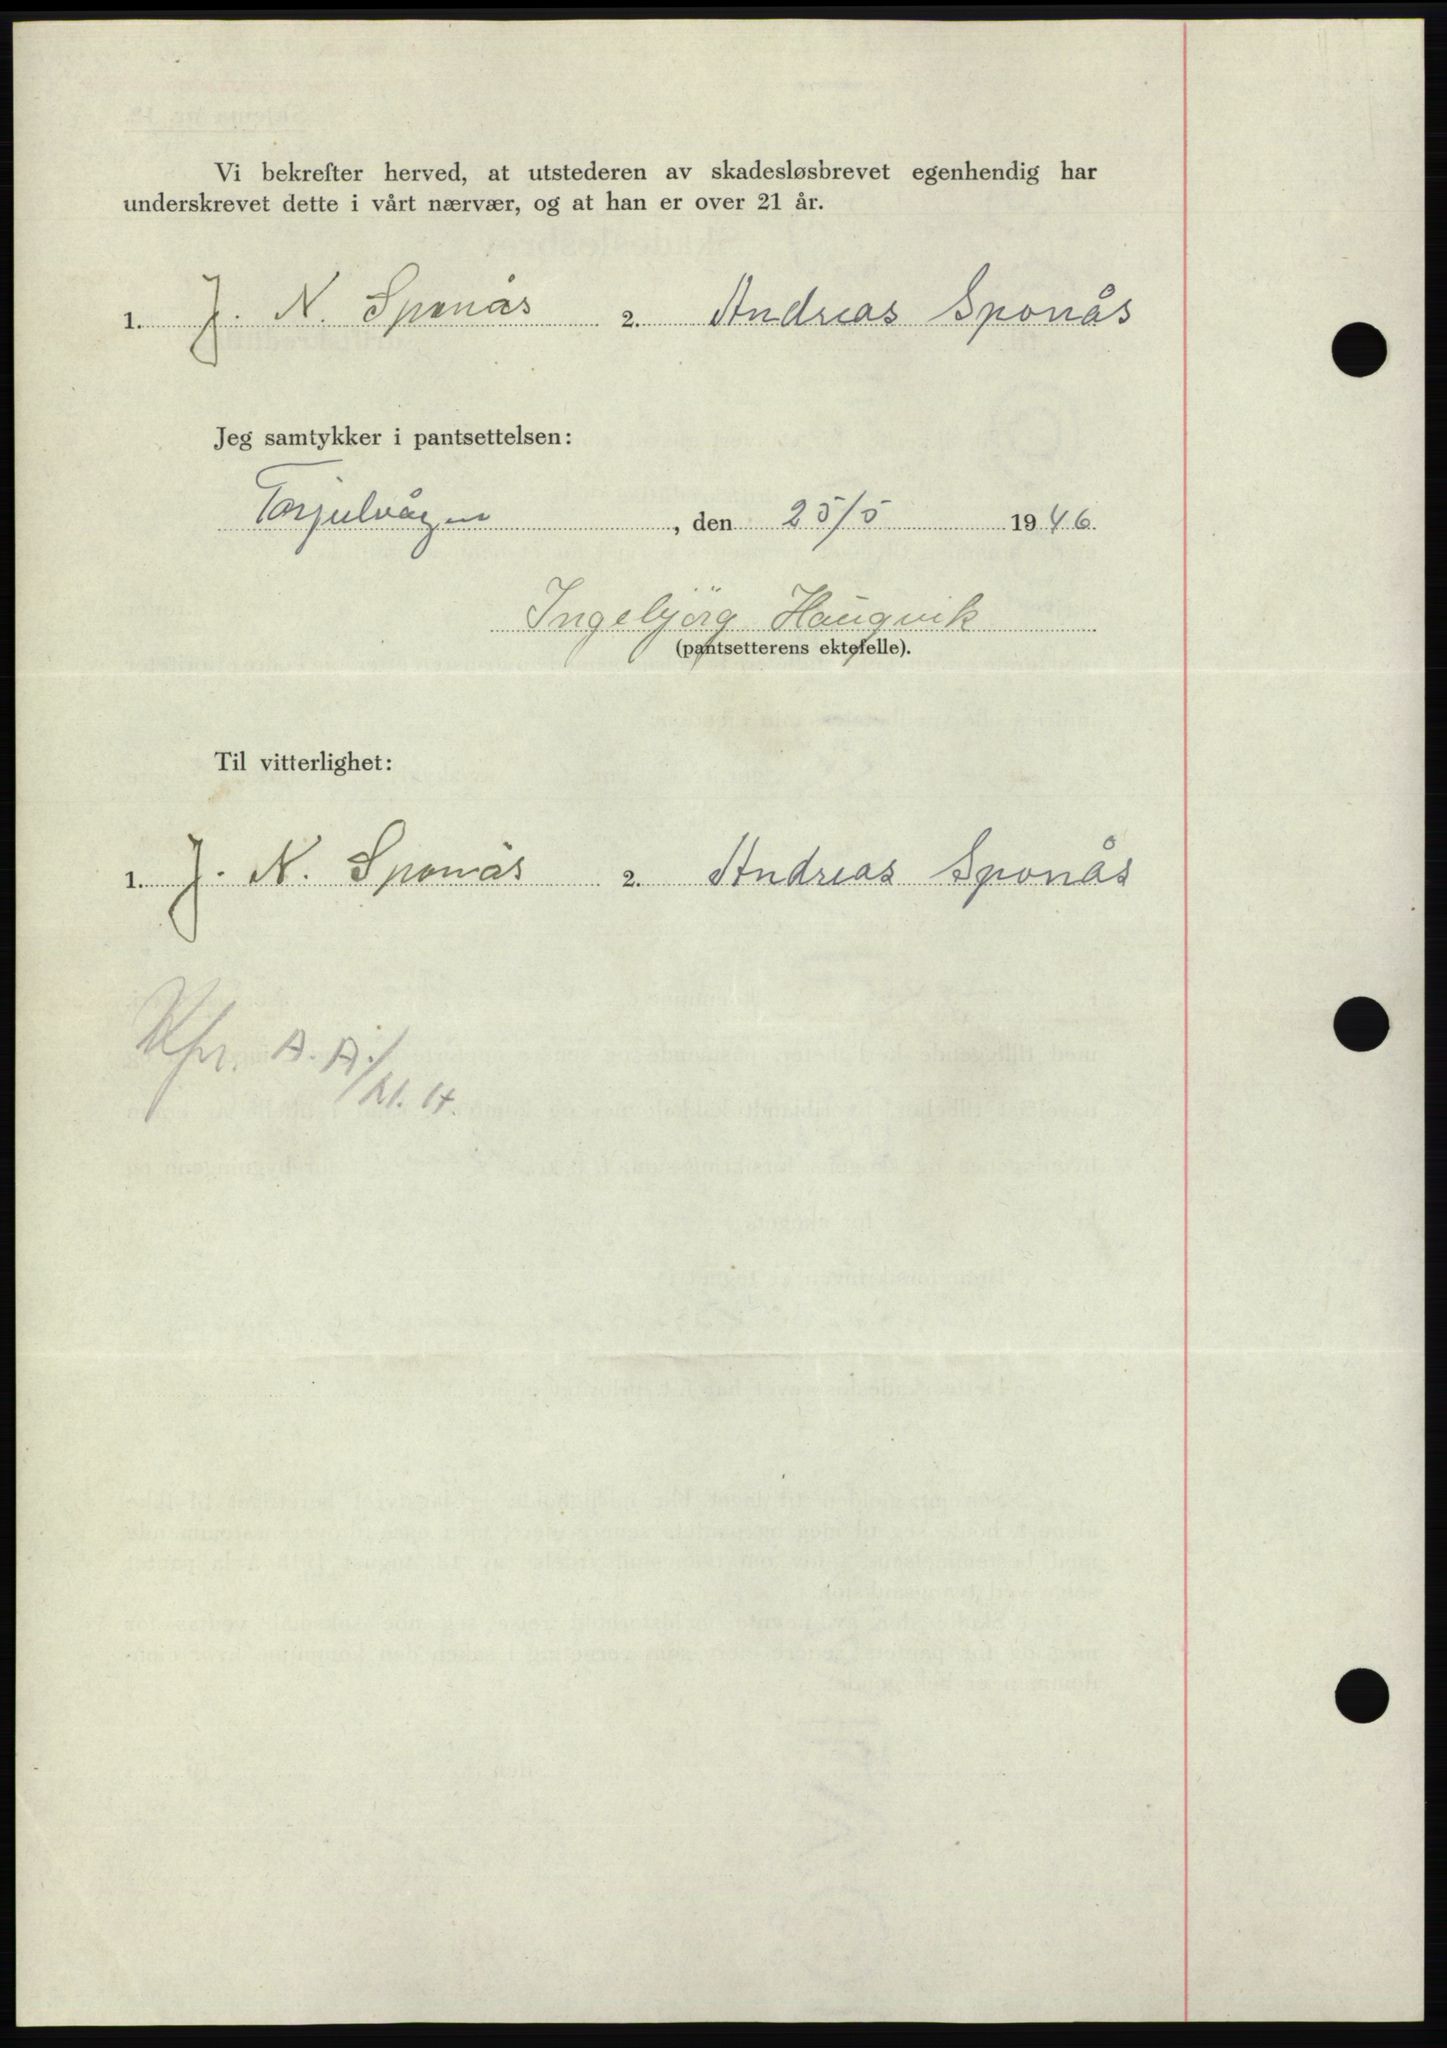 Vi bekrefter herved, at utstederen av skadesløsbrevet egenhendig har
underskrevet dette i vårt nærvær, og at han er over 21 år.
1. J. N. Sponås 2. Andreas Sponås
Jeg samtykker i pantsettelsen:
Torjulvågen, den 25/5 1946.
Ingebjörg Haugvik
(pantsetterens ektefelle).
Til vitterlighet:
1. J. N. Sponås 2. Andreas Sponås
A. A.